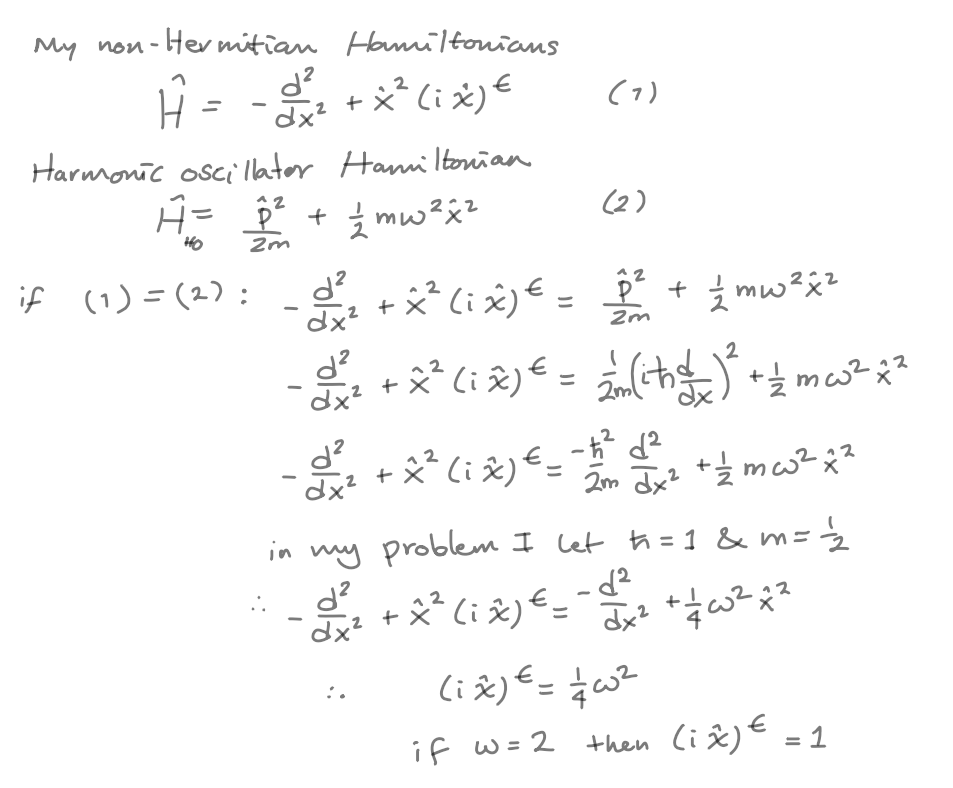 My non-Hermitian Hamiltonians
Ĥ = - d²/dx² + x̂² (i x̂)^ϵ (1)
Harmonic oscillator Hamiltonian
Ĥ_HO = p̂²/2m + 1/2 mω²x̂² (2)
if (1) = (2) : - d²/dx² + x̂² (i x̂)^ϵ = p̂²/2m + 1/2 mω²x̂²
- d²/dx² + x̂² (i x̂)^ϵ = 1/2m (iħ d/dx)² + 1/2 mω² x̂²
- d²/dx² + x̂² (i x̂)^ϵ = -ħ²/2m d²/dx² + 1/2 mω² x̂²
in my problem I let ħ = 1 & m = 1/2
∴ - d²/dx² + x̂² (i x̂)^ϵ = - d²/dx² + 1/4 ω² x̂²
∴ (i x̂)^ϵ = 1/4 ω²
if ω = 2 then (i x̂)^ϵ = 1